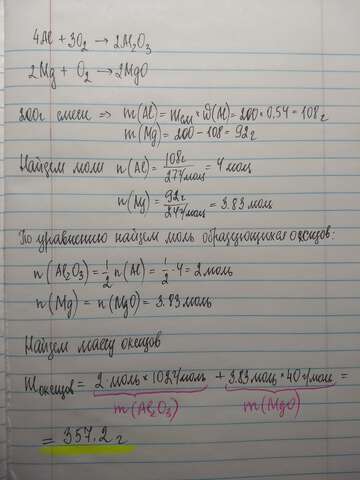 4Al + 3O₂ → 2Al₂O₃
2Mg + O₂ → 2MgO
200г смеси => m(Al) = mсм * ω(Al) = 200 * 0,54 = 108г
m(Mg) = 200 - 108 = 92г
Найдем моли n(Al) = 108г / 27г/моль = 4 моль
n(Mg) = 92г / 24г/моль = 3.83 моль
По уравнению найдем моль образующихся оксидов:
n(Al₂O₃) = 1/2 n(Al) = 1/2 · 4 = 2 моль
n(Mg) = n(MgO) = 3.83 моль
Найдем массу оксидов
mоксидов = 2 моль * 102г/моль + 3.83 моль * 40г/моль =
m(Al₂O₃) m(MgO)
= 357.2 г